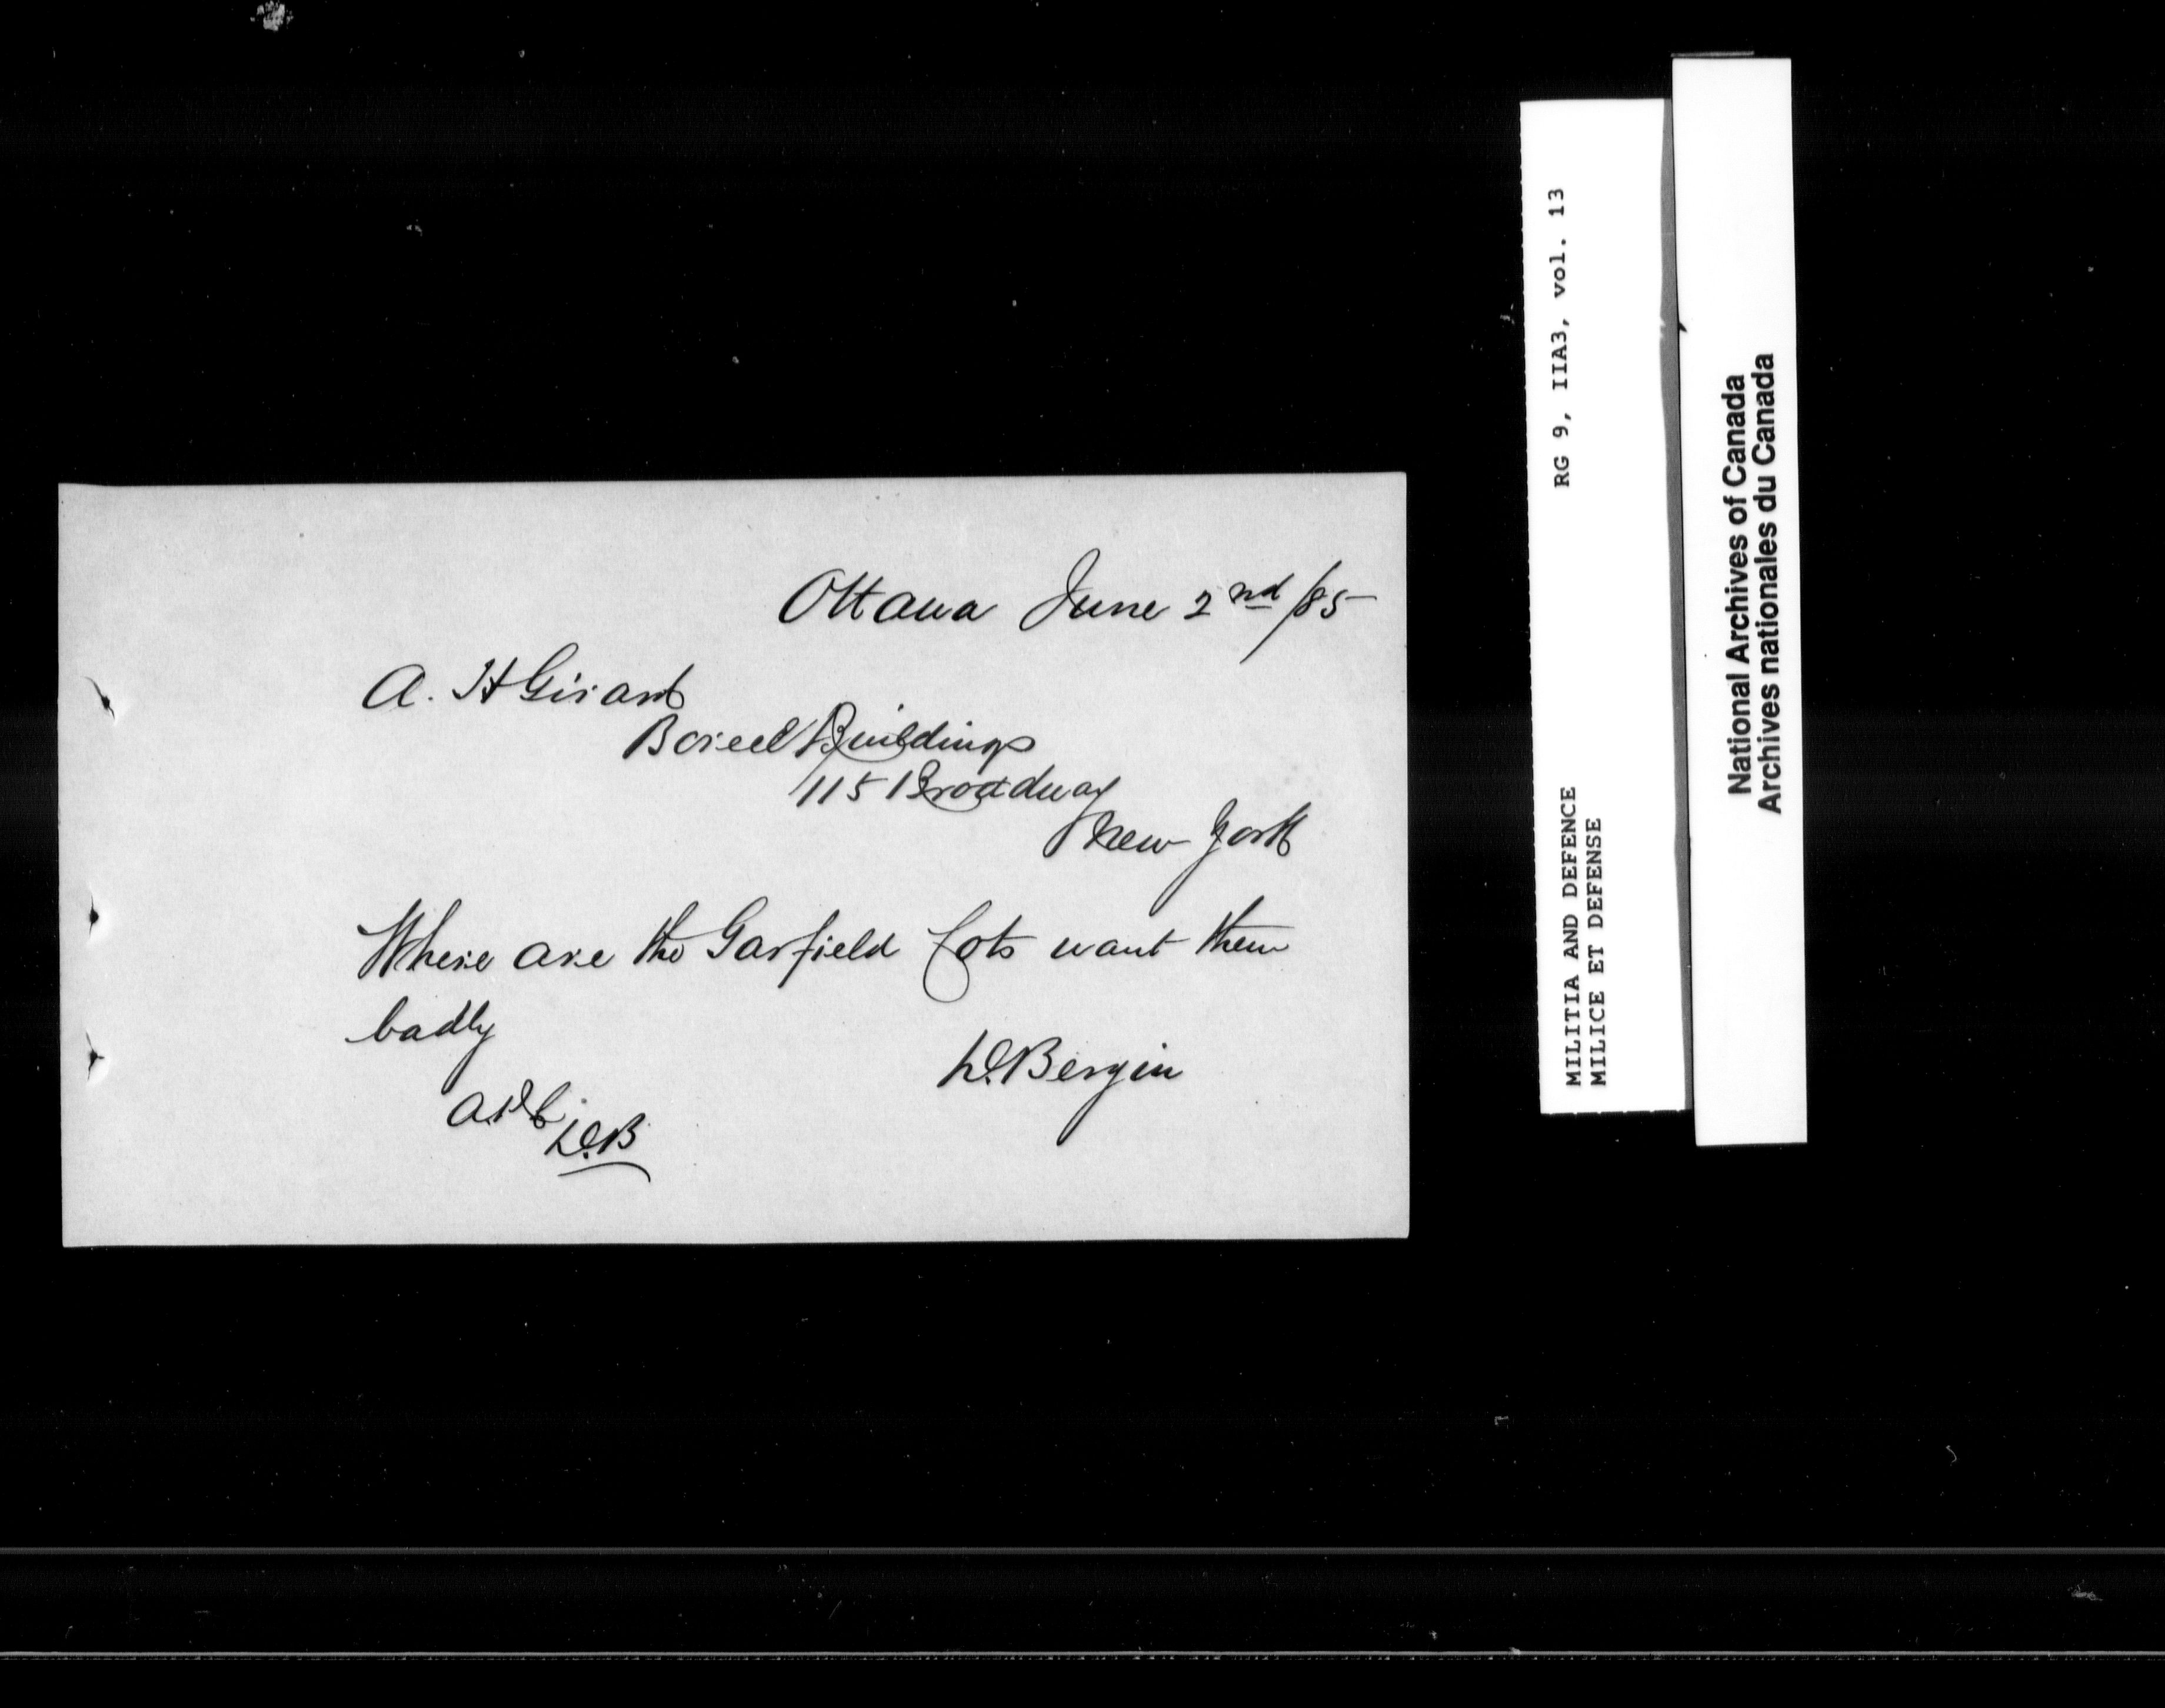 Ottawa June 2nd/85
A. H Girard
Boreel Buildings
115 Broadway
New York
Where are the Garfield Cots want them
badly
D. Bergin
D.B
RG 9, IIA3, vol. 13
MILITIA AND DEFENCE
MILICE ET DEFENSE
National Archives of Canada
Archives nationales du Canada